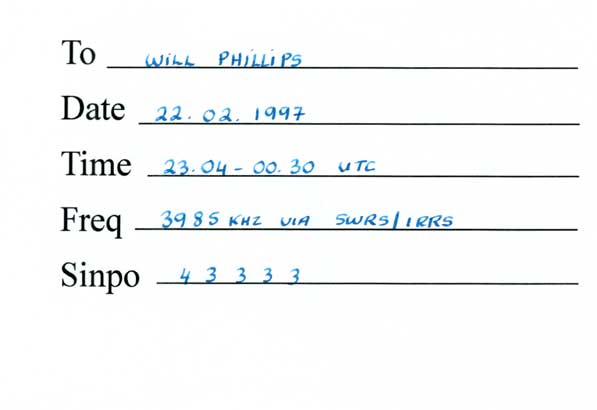 To WILL PHILLIPS
Date 22.02.1997
Time 23.04-00.30 UTC
Freq 3985 KHZ VIA SWRS/IRRS
Sinpo 4 3 3 3 3